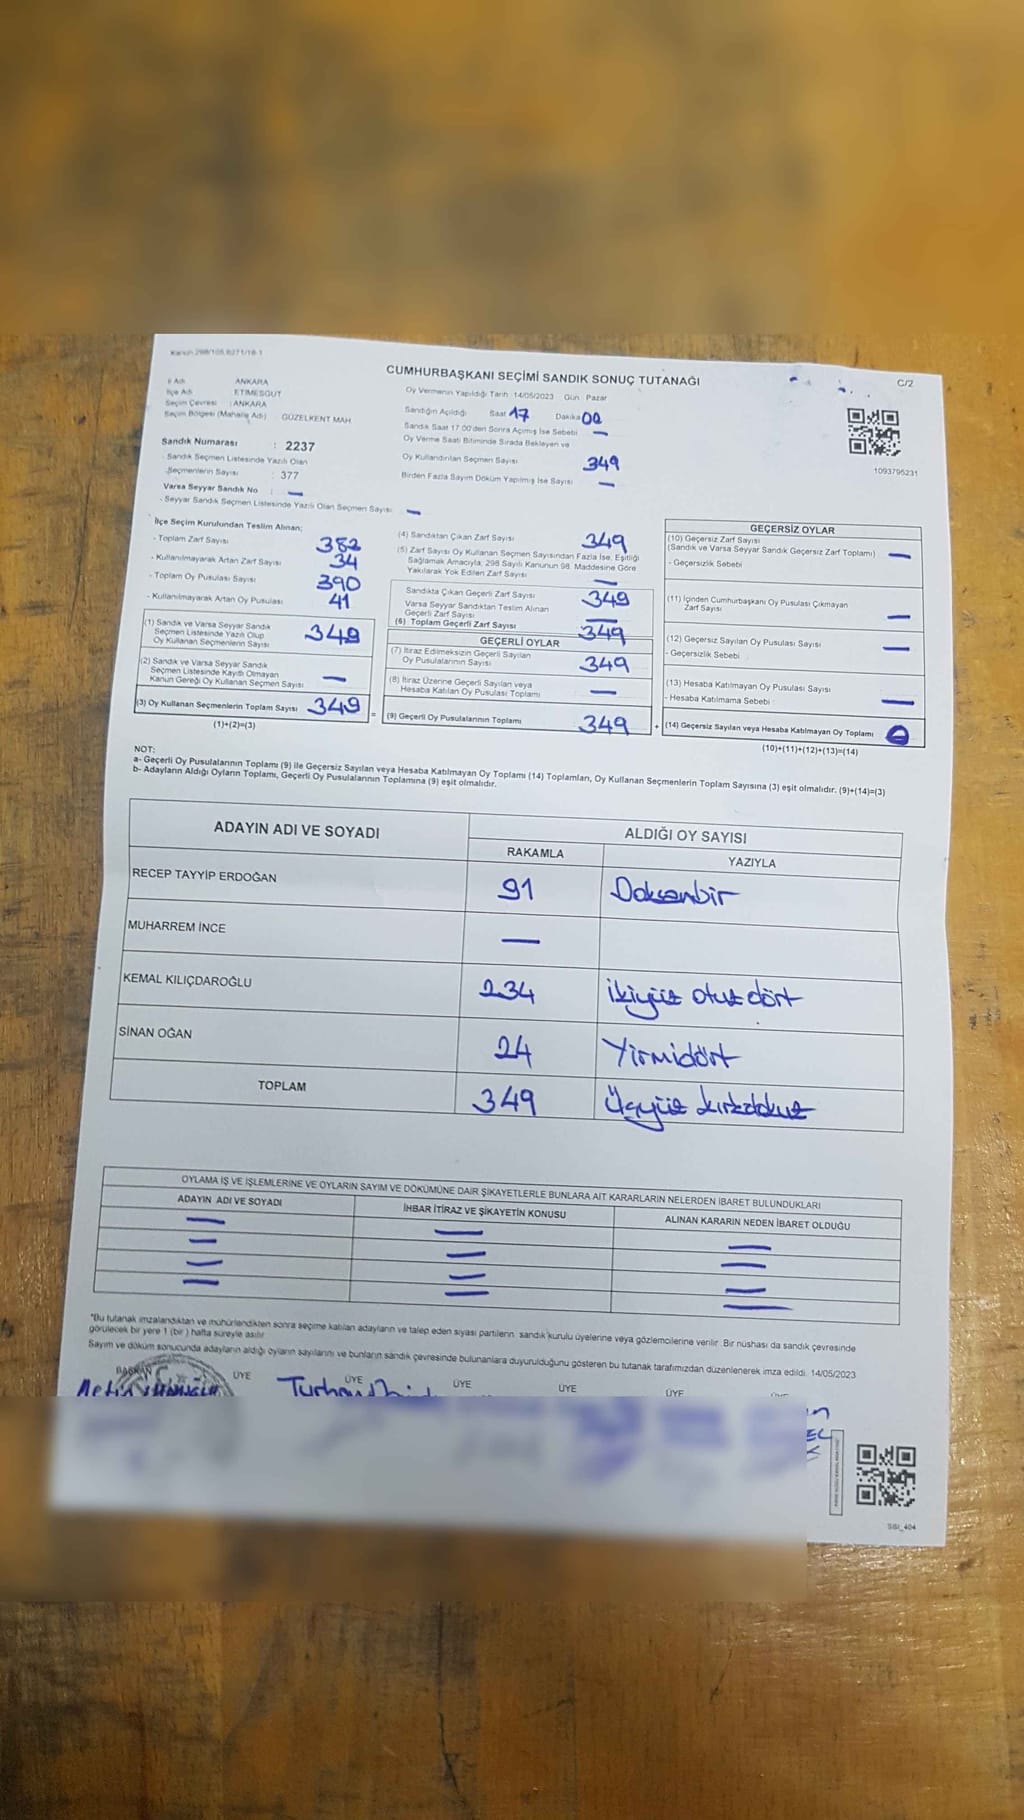 Kanun 298/105, 6271/18-1
CUMHURBAŞKANI SEÇİMİ SANDIK SONUÇ TUTANAĞI
C/2
İl Adı : ANKARA
İlçe Adı : ETİMESGUT
Seçim Çevresi : ANKARA
Seçim Bölgesi (Mahalle Adı) : GÜZELKENT MAH
Sandık Numarası : 2237
Sandık Seçmen Listesinde Yazılı Olan
Seçmenlerin Sayısı : 377
Varsa Seyyar Sandık No : —
- Seyyar Sandık Seçmen Listesinde Yazılı Olan Seçmen Sayısı : —
Oy Vermenin Yapıldığı Tarih : 14/05/2023 Gün : Pazar
Sandığın Açıldığı Saat 17 Dakika 00
Sandık Saat 17.00'den Sonra Açılmış İse Sebebi —
Oy Verme Saati Bitiminde Sırada Bekleyen ve
Oy Kullandırılan Seçmen Sayısı 349
Birden Fazla Sayım Döküm Yapılmış İse Sayısı —
1093795231
İlçe Seçim Kurulundan Teslim Alınan;
- Toplam Zarf Sayısı 382
- Kullanılmayarak Artan Zarf Sayısı 34
- Toplam Oy Pusulası Sayısı 390
- Kullanılmayarak Artan Oy Pusulası 41
(1) Sandık ve Varsa Seyyar Sandık
Seçmen Listesinde Yazılı Olup
Oy Kullanan Seçmenlerin Sayısı 349
(2) Sandık ve Varsa Seyyar Sandık
Seçmen Listesinde Kayıtlı Olmayan
Kanun Gereği Oy Kullanan Seçmen Sayısı —
(3) Oy Kullanan Seçmenlerin Toplam Sayısı 349 =
(1)+(2)=(3)
(4) Sandıktan Çıkan Zarf Sayısı 349
(5) Zarf Sayısı Oy Kullanan Seçmen Sayısından Fazla İse, Eşitliği
Sağlamak Amacıyla, 298 Sayılı Kanunun 98. Maddesine Göre
Yakılarak Yok Edilen Zarf Sayısı —
Sandıkta Çıkan Geçerli Zarf Sayısı 349
Varsa Seyyar Sandıktan Teslim Alınan
Geçerli Zarf Sayısı —
(6) Toplam Geçerli Zarf Sayısı 349
GEÇERLİ OYLAR
(7) İtiraz Edilmeksizin Geçerli Sayılan
Oy Pusulalarının Sayısı 349
(8) İtiraz Üzerine Geçerli Sayılan veya
Hesaba Katılan Oy Pusulası Toplamı —
(9) Geçerli Oy Pusulalarının Toplamı 349 +
GEÇERSİZ OYLAR
(10) Geçersiz Zarf Sayısı
(Sandık ve Varsa Seyyar Sandık Geçersiz Zarf Toplamı) —
- Geçersizlik Sebebi
(11) İçinden Cumhurbaşkanı Oy Pusulası Çıkmayan
Zarf Sayısı —
(12) Geçersiz Sayılan Oy Pusulası Sayısı —
- Geçersizlik Sebebi
(13) Hesaba Katılmayan Oy Pusulası Sayısı
- Hesaba Katılmama Sebebi —
(14) Geçersiz Sayılan veya Hesaba Katılmayan Oy Toplamı 0
(10)+(11)+(12)+(13)=(14)
NOT:
a- Geçerli Oy Pusulalarının Toplamı (9) ile Geçersiz Sayılan veya Hesaba Katılmayan Oy Toplamı (14) Toplamları, Oy Kullanan Seçmenlerin Toplam Sayısına (3) eşit olmalıdır. (9)+(14)=(3)
b- Adayların Aldığı Oyların Toplamı, Geçerli Oy Pusulalarının Toplamına (9) eşit olmalıdır.
ADAYIN ADI VE SOYADI ALDIĞI OY SAYISI
RAKAMLA YAZIYLA
RECEP TAYYİP ERDOĞAN 91 Doksanbir
MUHARREM İNCE —
KEMAL KILIÇDAROĞLU 234 ikiyüz otuz dört
SİNAN OĞAN 24 Yirmidört
TOPLAM 349 Üçyüz kırkdokuz
OYLAMA İŞ VE İŞLEMLERİNE VE OYLARIN SAYIM VE DÖKÜMÜNE DAİR ŞİKAYETLERLE BUNLARA AİT KARARLARIN NELERDEN İBARET BULUNDUKLARI
ADAYIN ADI VE SOYADI İHBAR İTİRAZ VE ŞİKAYETİN KONUSU ALINAN KARARIN NEDEN İBARET OLDUĞU
— — —
— — —
— — —
— — —
*Bu tutanak imzalandıktan ve mühürlendikten sonra seçime katılan adayların ve talep eden siyasi partilerin sandık kurulu üyelerine veya gözlemcilerine verilir. Bir nüshası da sandık çevresinde
görülecek bir yere 1 (bir) hafta süreyle asılır.
Sayım ve döküm sonucunda adayların aldığı oyların sayılarını ve bunların sandık çevresinde bulunanlara duyurulduğunu gösteren bu tutanak tarafımızdan düzenlenerek imza edildi. 14/05/2023
BAŞKAN ÜYE ÜYE ÜYE ÜYE ÜYE ÜYE
SSI_404